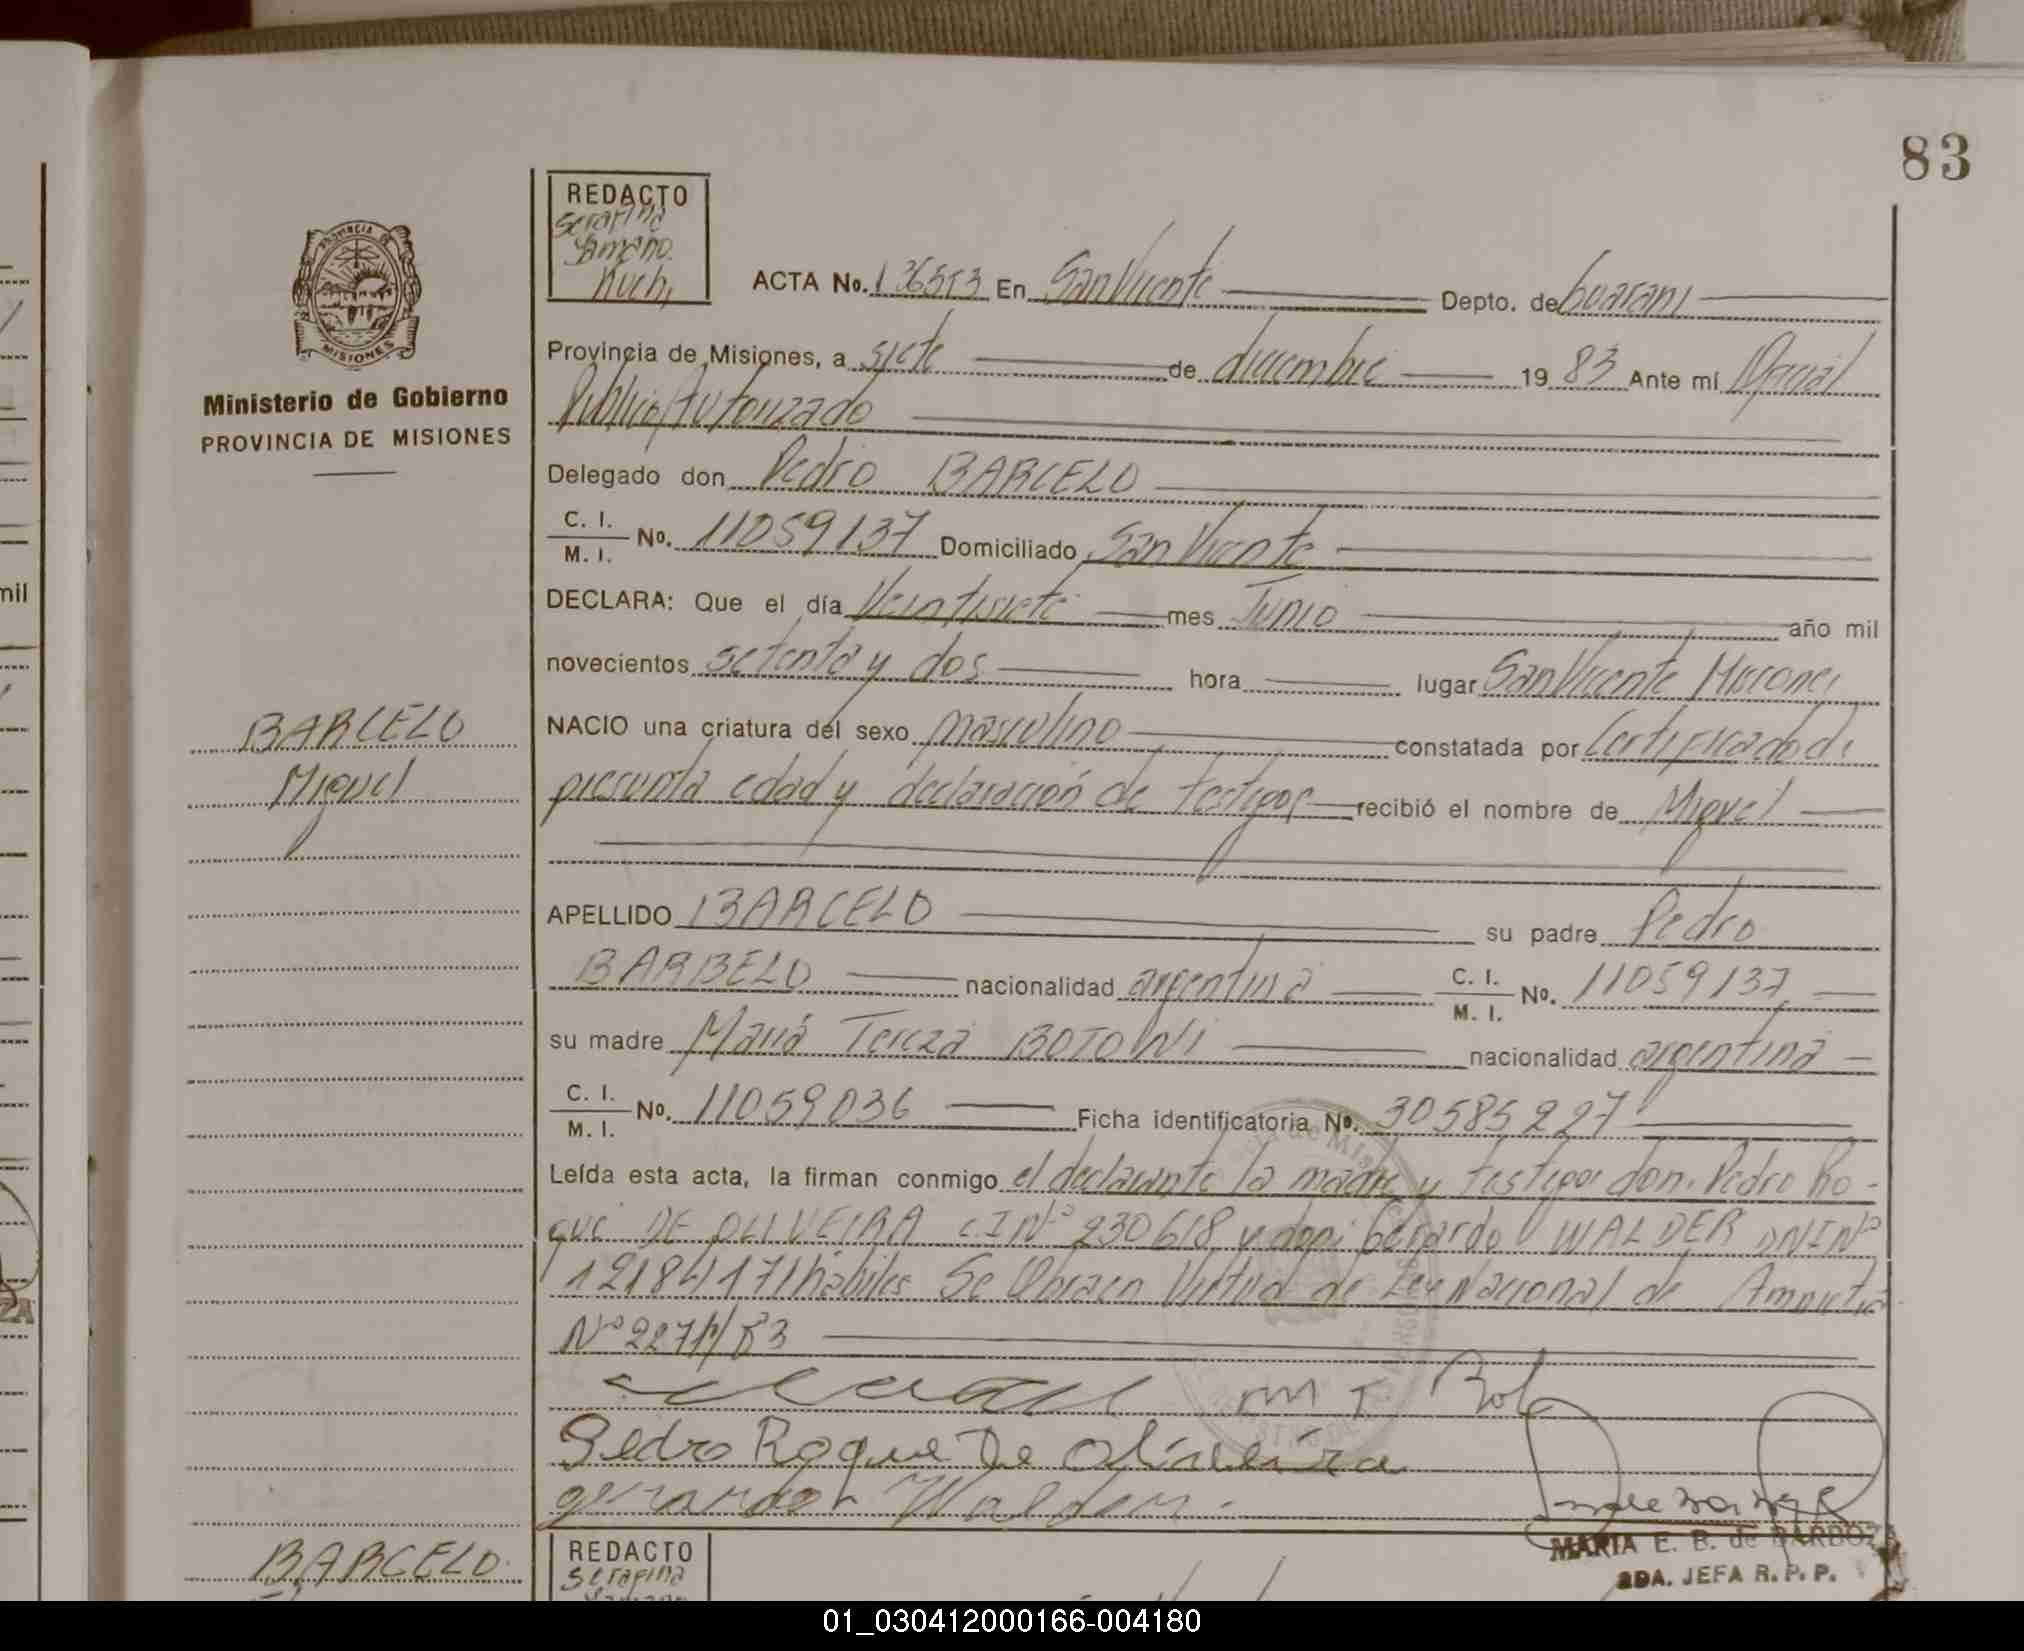 83
REDACTO
Serafina
Kuch,
ACTA No. 136553 En San Vicente Depto. de Guarani
PROVINCIA DE
MISIONES
Provincia de Misiones, a siete de diciembre 19 83 Ante mí Oficial
Ministerio de Gobierno
Público Autorizado
PROVINCIA DE MISIONES
Delegado don Pedro BARCELO
C. I.
M. I.
No. 11059137 Domiciliado San Vicente
DECLARA: Que el día Veintisiete mes Junio año mil
mil
novecientos setenta y dos hora lugar San Vicente Misiones
BARCELO
NACIO una criatura del sexo masculino constatada por Certificado de
Miguel
presunta edad y declaración de testigos recibió el nombre de Miguel
APELLIDO BARCELO su padre Pedro
BARBELO nacionalidad argentina C. I.
M. I. No. 11059137
su madre María Tereza BOTONI nacionalidad argentina
C. I.
M. I.
No. 11059036 Ficha identificatoria No. 30585227
Leída esta acta, la firman conmigo el declarante la madre y testigos don. Pedro Ro-
que DE OLIVEIRA C.I Nº 230618 y don: Gerardo WALDER DNI Nº
12184171 hábiles Se Obra en Virtud de Ley Nacional de Amnistia
Nº 22711/83
M T Bot
Pedro Roque De Oliveira
gerardo Walder
MARIA E. B. de BARBOZA
2DA. JEFA R. P. P.
BARCELO
REDACTO
Serapina
01_030412000166-004180